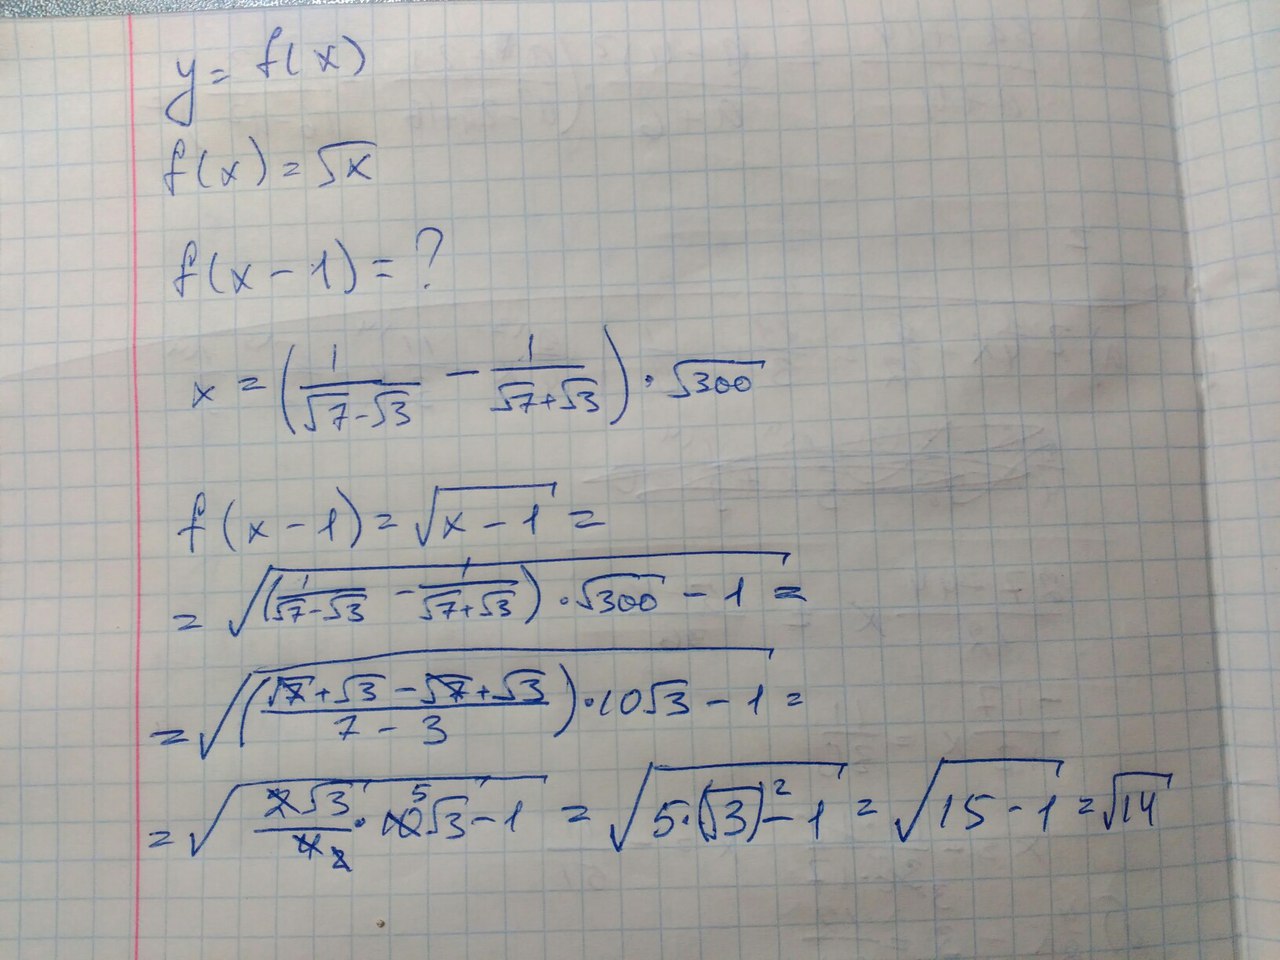 y = f(x)
f(x) = √x
f(x - 1) = ?
x = (1/(√7-√3) - 1/(√7+√3)) · √300
f(x - 1) = √(x - 1) =
= √((1/(√7-√3) - 1/(√7+√3)) · √300 - 1) =
= √(((√7+√3-√7+√3)/(7-3)) · 10√3 - 1) =
= √((2√3/4 2) · 10 5 √3 - 1) = √(5·(√3)² - 1) = √(15 - 1) = √14